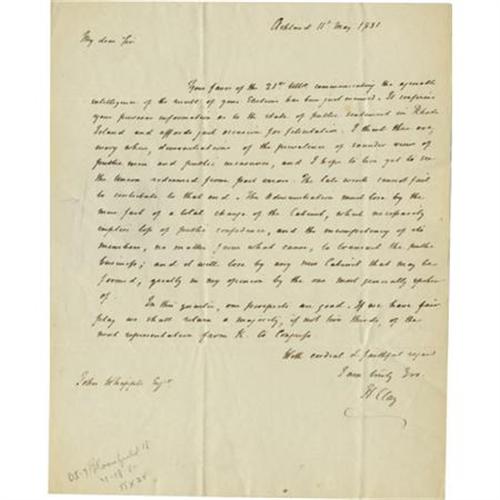 Ashland 11th May 1831
My dear Sir
Your favor of the 21st Ulto. communicating the agreeable
intelligence of the result of your Elections has been just received. It confirms
your previous information as to the state of public sentiment in Rhode
Island and affords just occasion for felicitation. I think there are,
every where, demonstrations of the prevalence of sounder views of
public men and public measures, and I hope to live yet to see
the Union redeemed from past errors. The late events cannot fail
to contribute to that end. The Administration must lose by the
mere fact of a total change of the Cabinet, which necessarily
implies loss of public confidence, and the incompetency of its
members, no matter from what cause, to transact the public
business; and it will lose by any new Cabinet that may be
formed, greatly in my opinion by the one most generally spoken
of.
In this quarter, our prospects are good. If we have fair
play we shall return a majority, if not two thirds, of the
next representation from K. to Congress.
With cordial & faithful regard
I am truly Yrs.
H Clay
John Whipple Esqr.